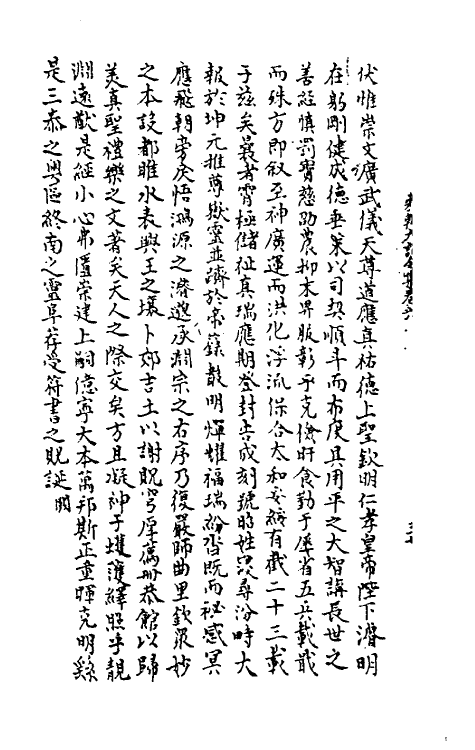 伏惟崇文廣武儀天尊道應真祐德上聖欽明仁孝皇帝陛下濬明
在躬剛健成德垂象以司契順斗而布度具用平之大智講長世之
善經慎罰霄慈勖農抑末卑服彰于克儉旰食勤于屢省五兵載戢
而殊方即叙至神廣運而洪化浮流保合太和委緘有截二十三載
于茲矣曩者霄極儲祉真瑞應期登封告成刻號昭姓園尋汾時大
報於坤元推尊嶽靈並躋於帝籙聲明煇耀福瑞紛沓既而祕感冥
應飛軿旁戾悟鴻源之濬邈承淵宗之右序乃復嚴師曲里欽眾妙
之本設都睢水表興王之壤卜郊吉土以謝貺穹厚薦冊恭館以歸
美真聖禮樂之文著矣天人之際交矣方且凝神于蠖濩繹照乎靚
淵遠猷是經小心弗匱崇建上嗣億寧大本萬邦斯正重暉克明繇
是三秦之奧區終南之靈阜荐受符書之貺誕